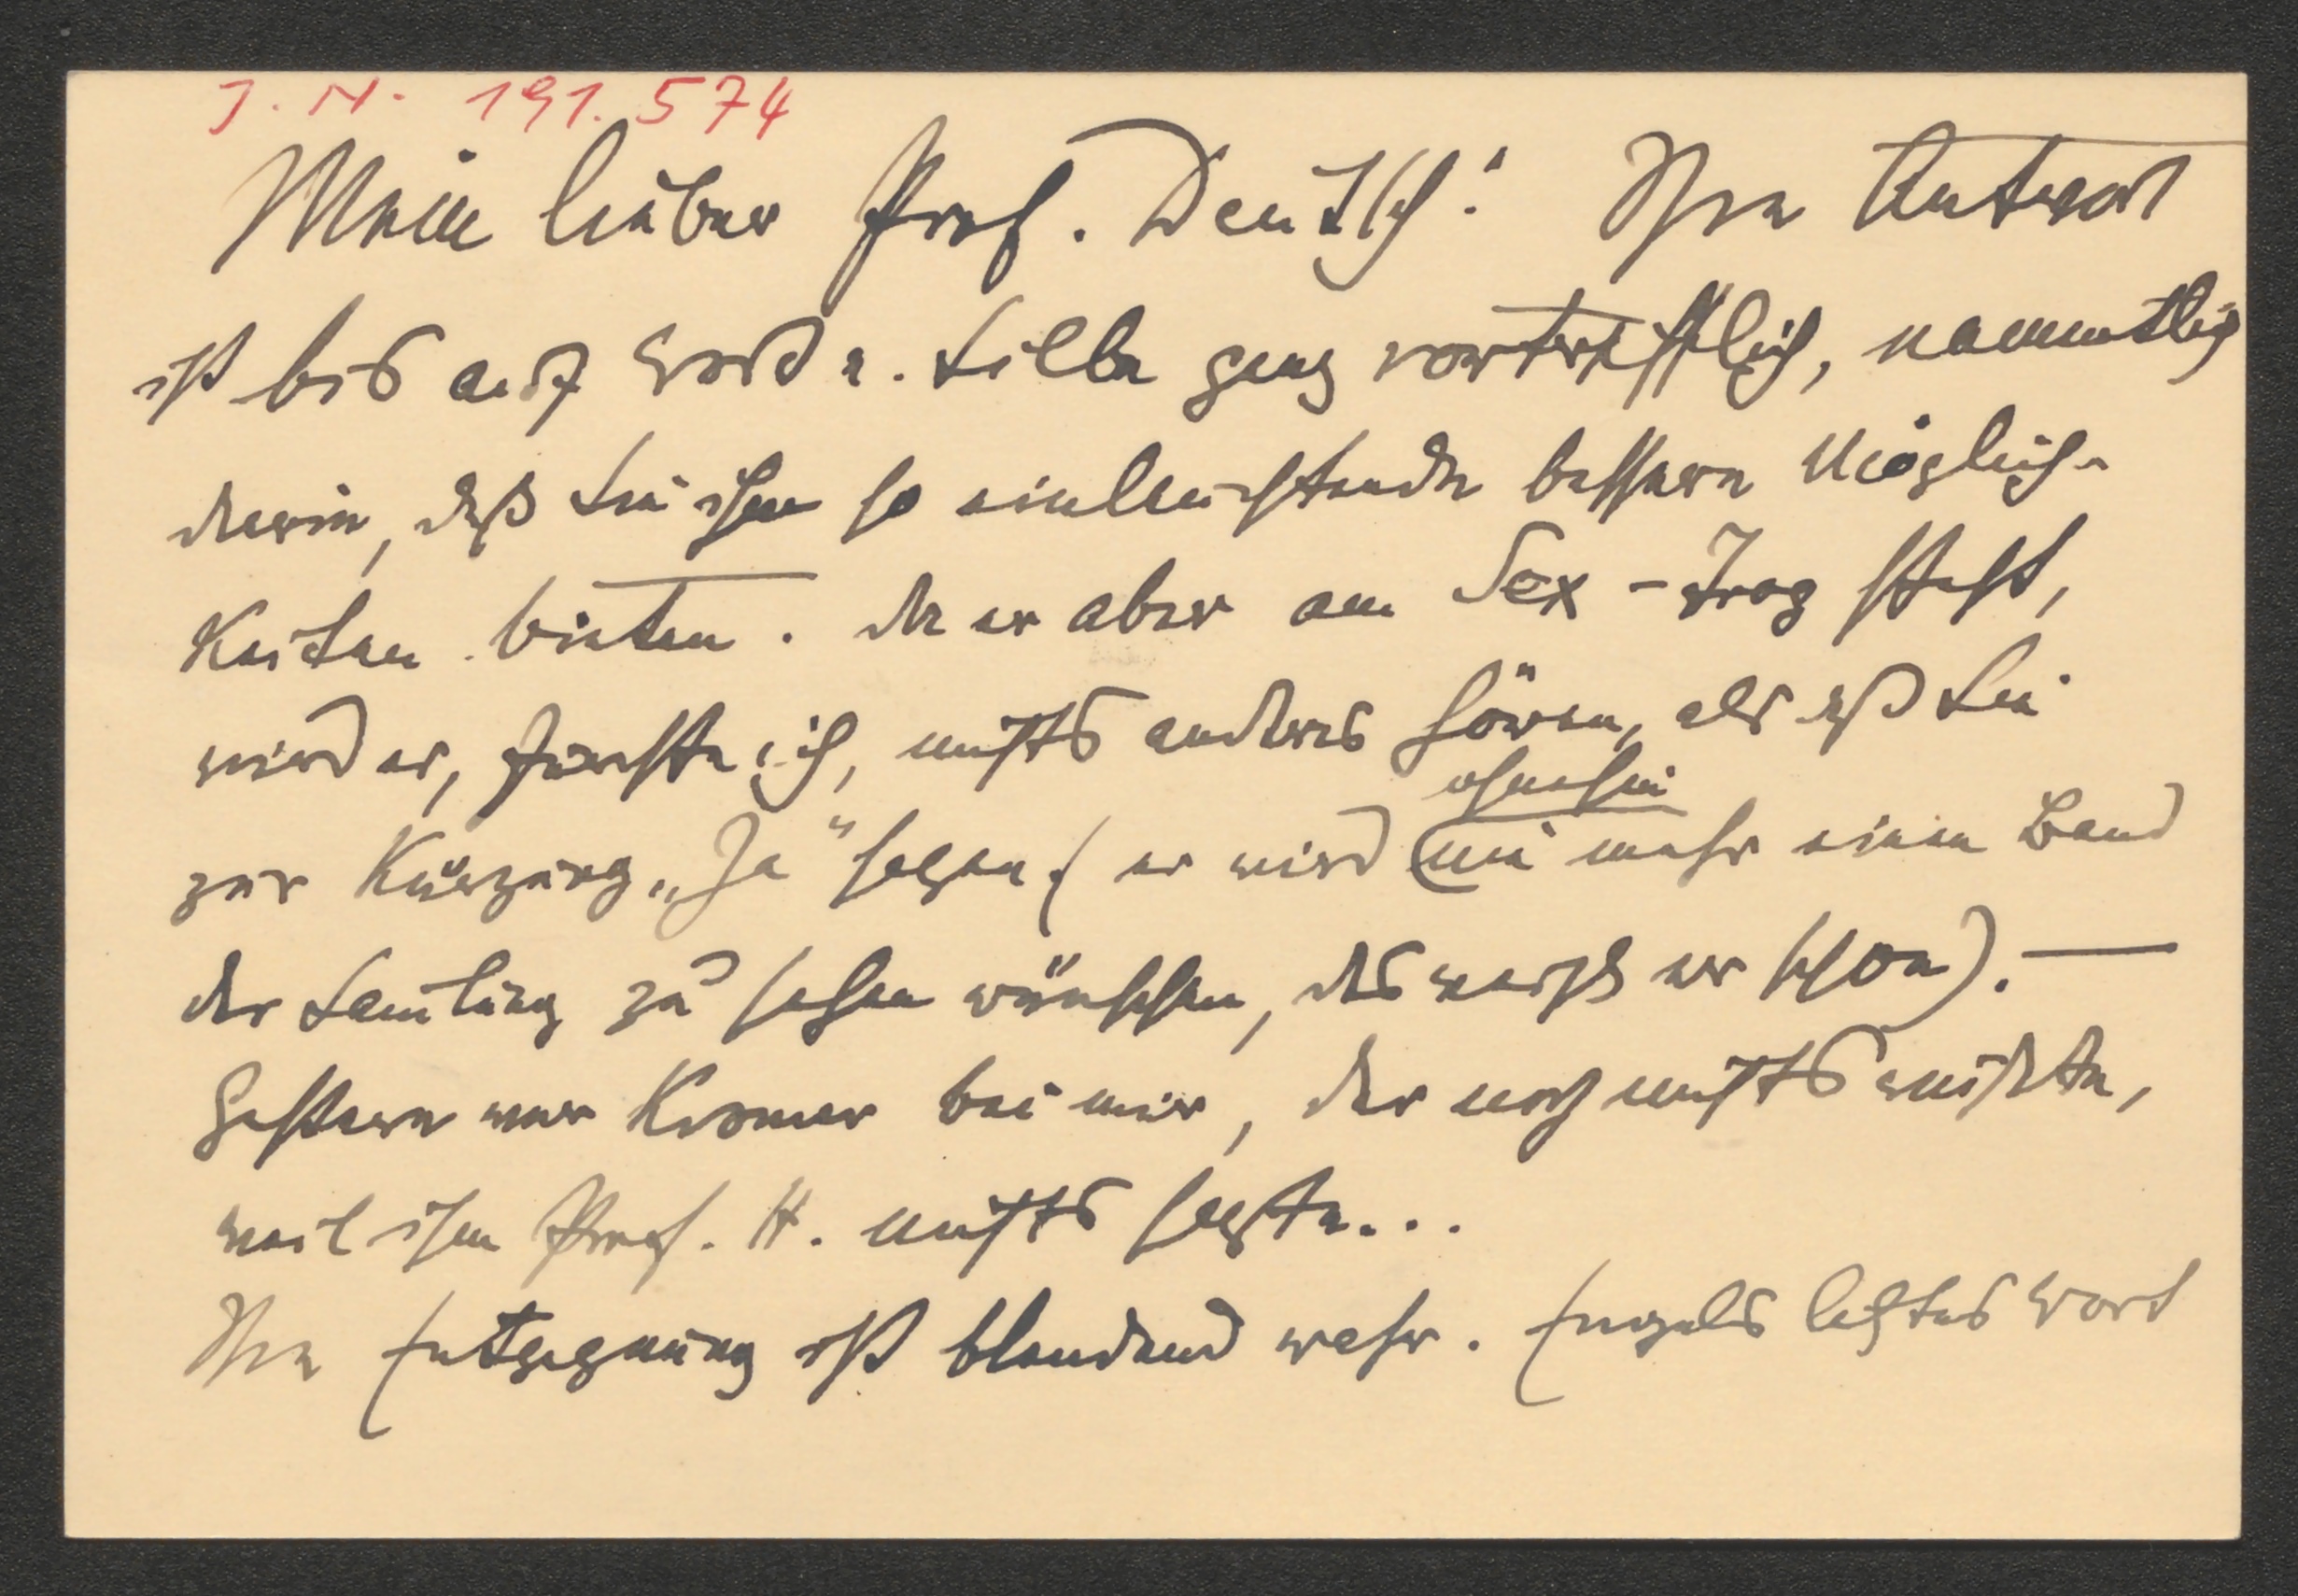 J. N. 191.574
Mein lieber Prof. Deutsch! Ihre Antwort
ist bis auf Word u. Silbe ganz vortrefflich, namentlich
darin, daß Sie ihm so einleuchtende bessere Möglich-
keiten bieten. Da er aber am Sex-Trog steht,
wird er, fürchte ich, nichts anderes hören, als daß Sie
ohnehin
zur Kürzung „Ja" sagen (er wird nie mehr einen Band
der Samlung zu sehen wünschen, das weiß er schon). —
Gestern war Kromer bei mir, der noch nichts wußte,
weil ihm Prof. H. nichts sagte...
Ihre Entgegnung ist blendend wahr. Engels letztes Wort